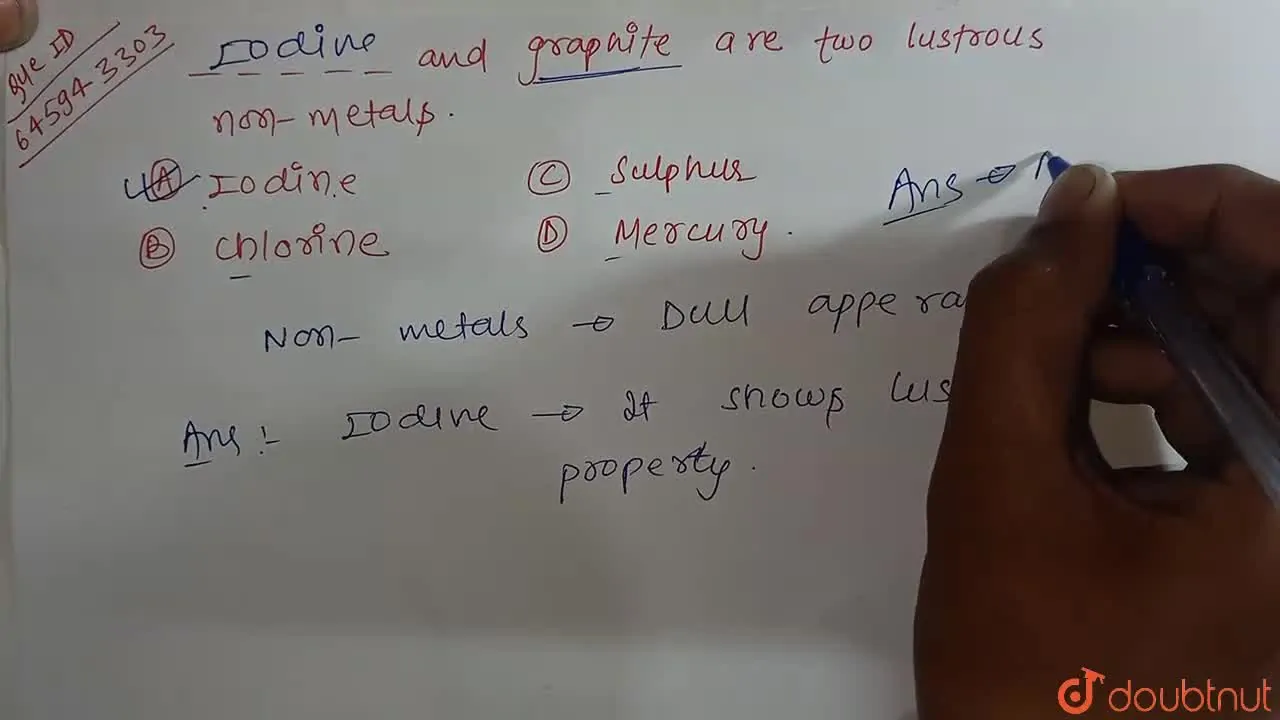 Que ID
645943303
Iodine and graphite are two lustrous
non-metals.
A Iodine
C Sulphur
Ans →
B Chlorine
D Mercury.
Non-metals → Dull appera
Ans :- Iodine → It shows lus
property.
doubtnut